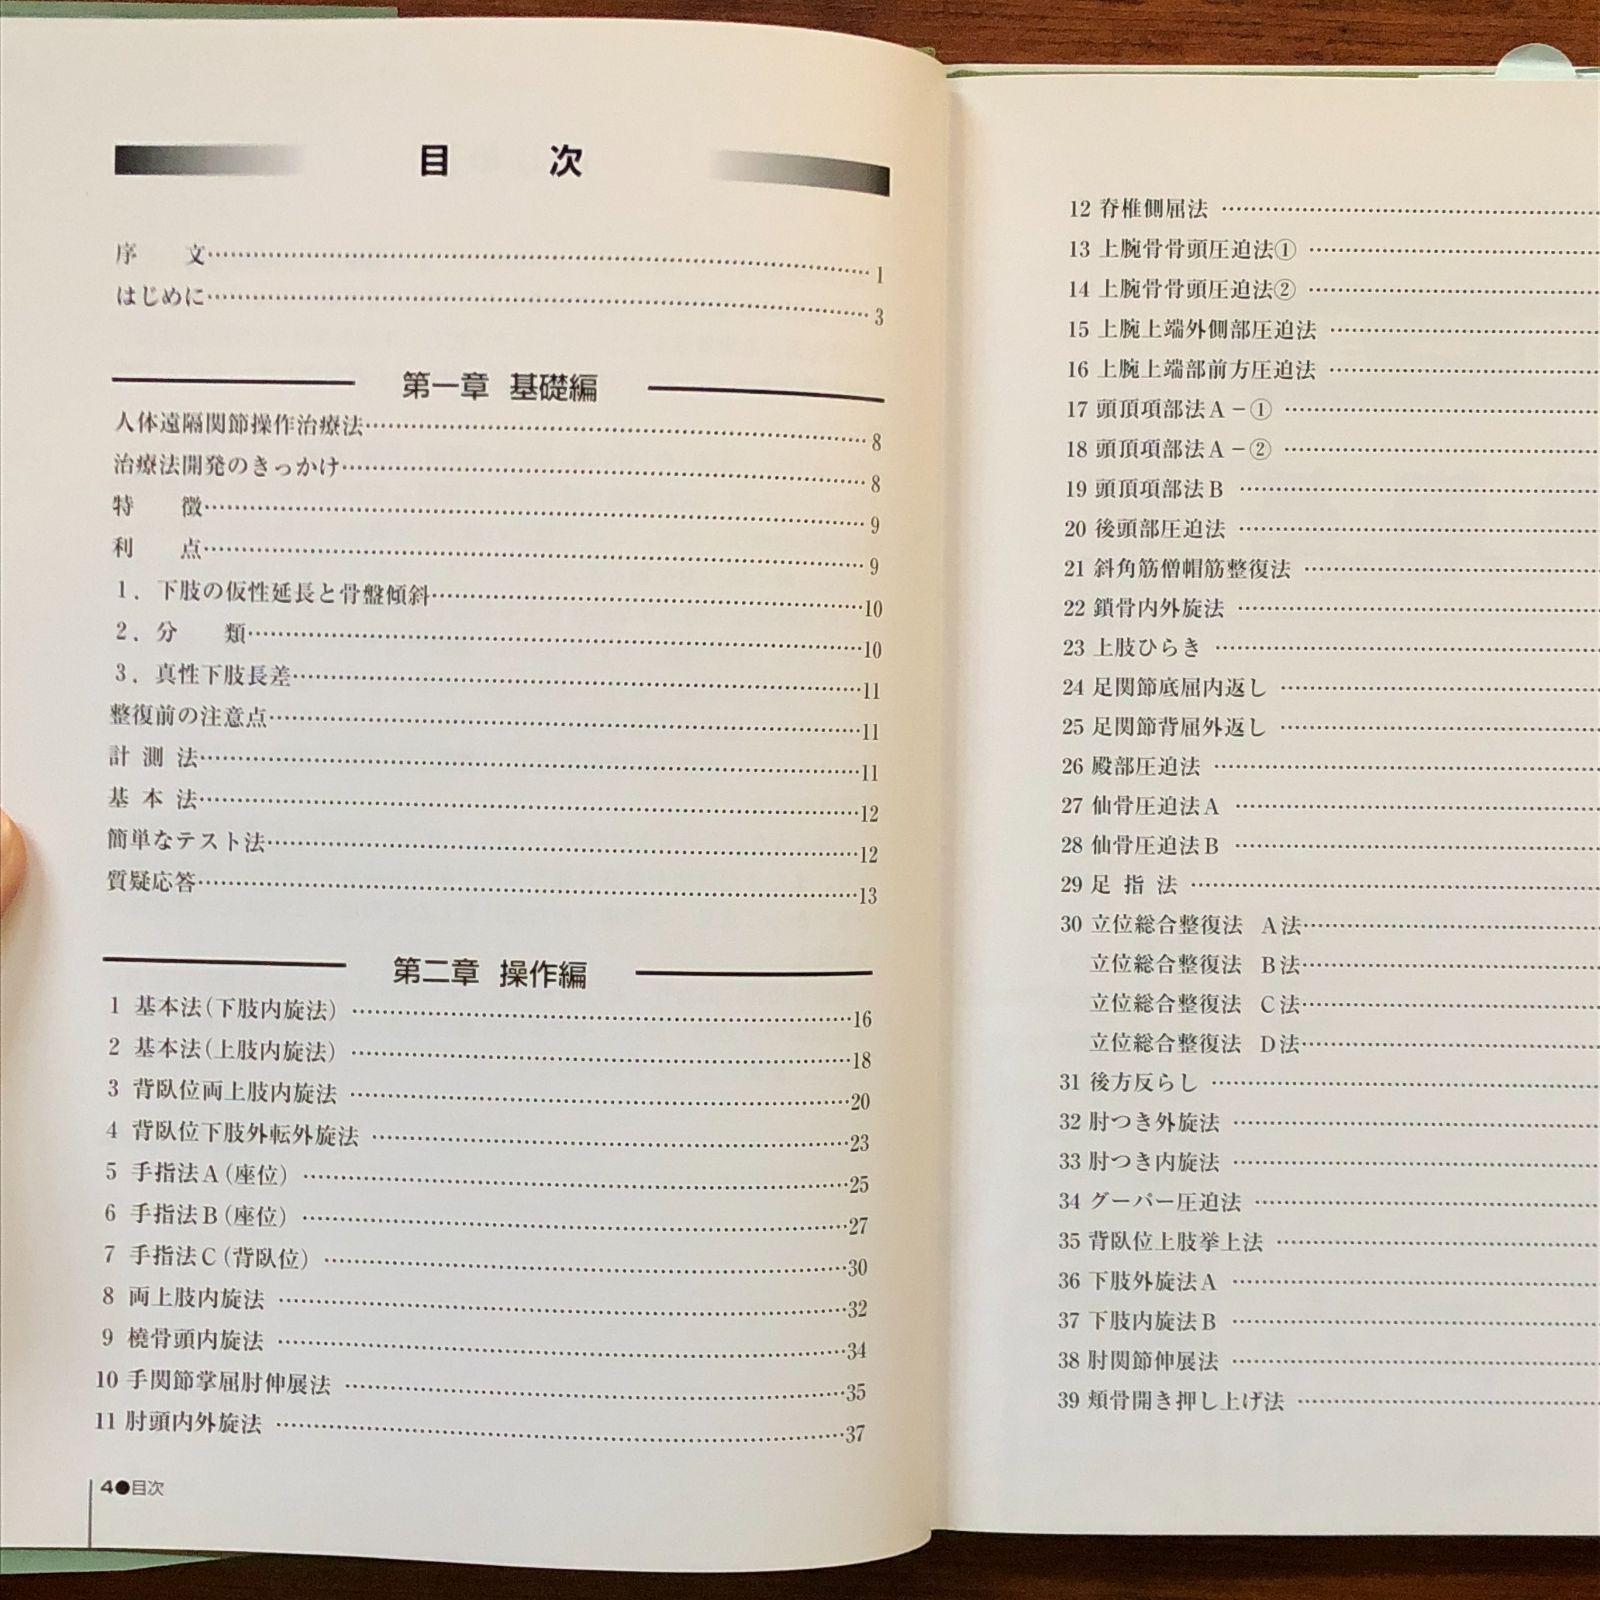 目　　次
序　　文……1
はじめに……3
第一章 基礎編
人体遠隔関節操作治療法……8
治療法開発のきっかけ……8
特　　徴……9
利　　点……9
1．下肢の仮性延長と骨盤傾斜……10
2．分　　類……10
3．真性下肢長差……11
整復前の注意点……11
計 測 法……11
基 本 法……12
簡単なテスト法……12
質疑応答……13
第二章 操作編
1 基本法(下肢内旋法)……16
2 基本法(上肢内旋法)……18
3 背臥位両上肢内旋法……20
4 背臥位下肢外転外旋法……23
5 手指法A(座位)……25
6 手指法B(座位)……27
7 手指法C(背臥位)……30
8 両上肢内旋法……32
9 橈骨頭内旋法……34
10 手関節掌屈肘伸展法……35
11 肘頭内外旋法……37
4●目次
12 脊椎側屈法……
13 上腕骨骨頭圧迫法①……
14 上腕骨骨頭圧迫法②……
15 上腕上端外側部圧迫法……
16 上腕上端部前方圧迫法……
17 頭頂項部法A－①……
18 頭頂項部法A－②……
19 頭頂項部法B……
20 後頭部圧迫法……
21 斜角筋僧帽筋整復法……
22 鎖骨内外旋法……
23 上肢ひらき……
24 足関節底屈内返し……
25 足関節背屈外返し……
26 殿部圧迫法……
27 仙骨圧迫法A……
28 仙骨圧迫法B……
29 足 指 法……
30 立位総合整復法 A法……
立位総合整復法 B法……
立位総合整復法 C法……
立位総合整復法 D法……
31 後方反らし……
32 肘つき外旋法……
33 肘つき内旋法……
34 グーパー圧迫法……
35 背臥位上肢挙上法……
36 下肢外旋法A……
37 下肢内旋法B……
38 肘関節伸展法……
39 頬骨開き押し上げ法……